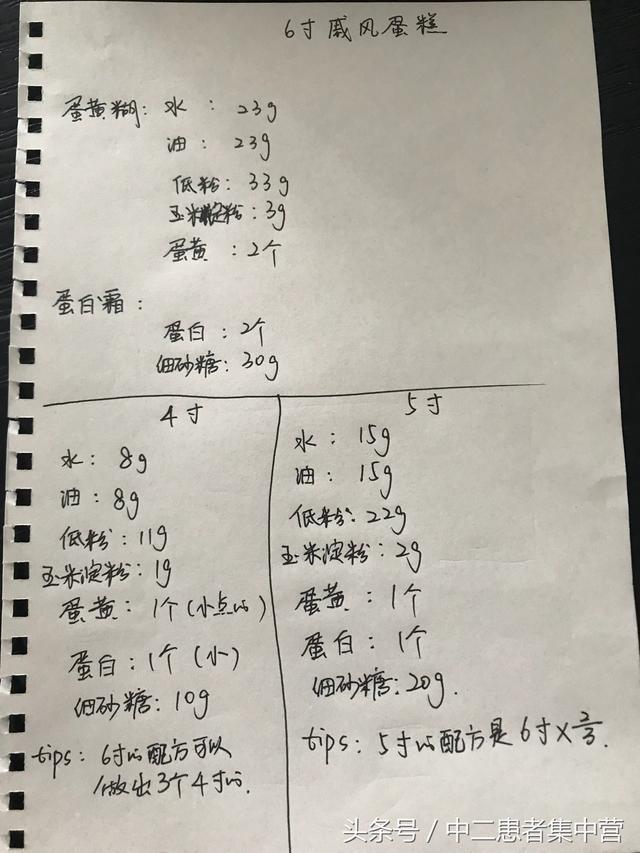 6寸戚风蛋糕
蛋黄糊: 水 : 23g
油 : 23g
低粉: 33g
玉米淀粉: 3g
蛋黄 : 2个
蛋白霜 :
蛋白 : 2个
细砂糖: 30g
4寸
水: 8g
油: 8g
低粉: 11g
玉米淀粉: 1g
蛋黄: 1个(小点的)
蛋白: 1个(小)
细砂糖: 10g
tips: 6寸的配方可以
做出3个4寸的.
5寸
水: 15g
油: 15g
低粉: 22g
玉米淀粉: 2g
蛋黄 : 1个
蛋白 : 1个
细砂糖: 20g.
tips: 5寸的配方是6寸×2/3.
头条号 / 中二患者集中营